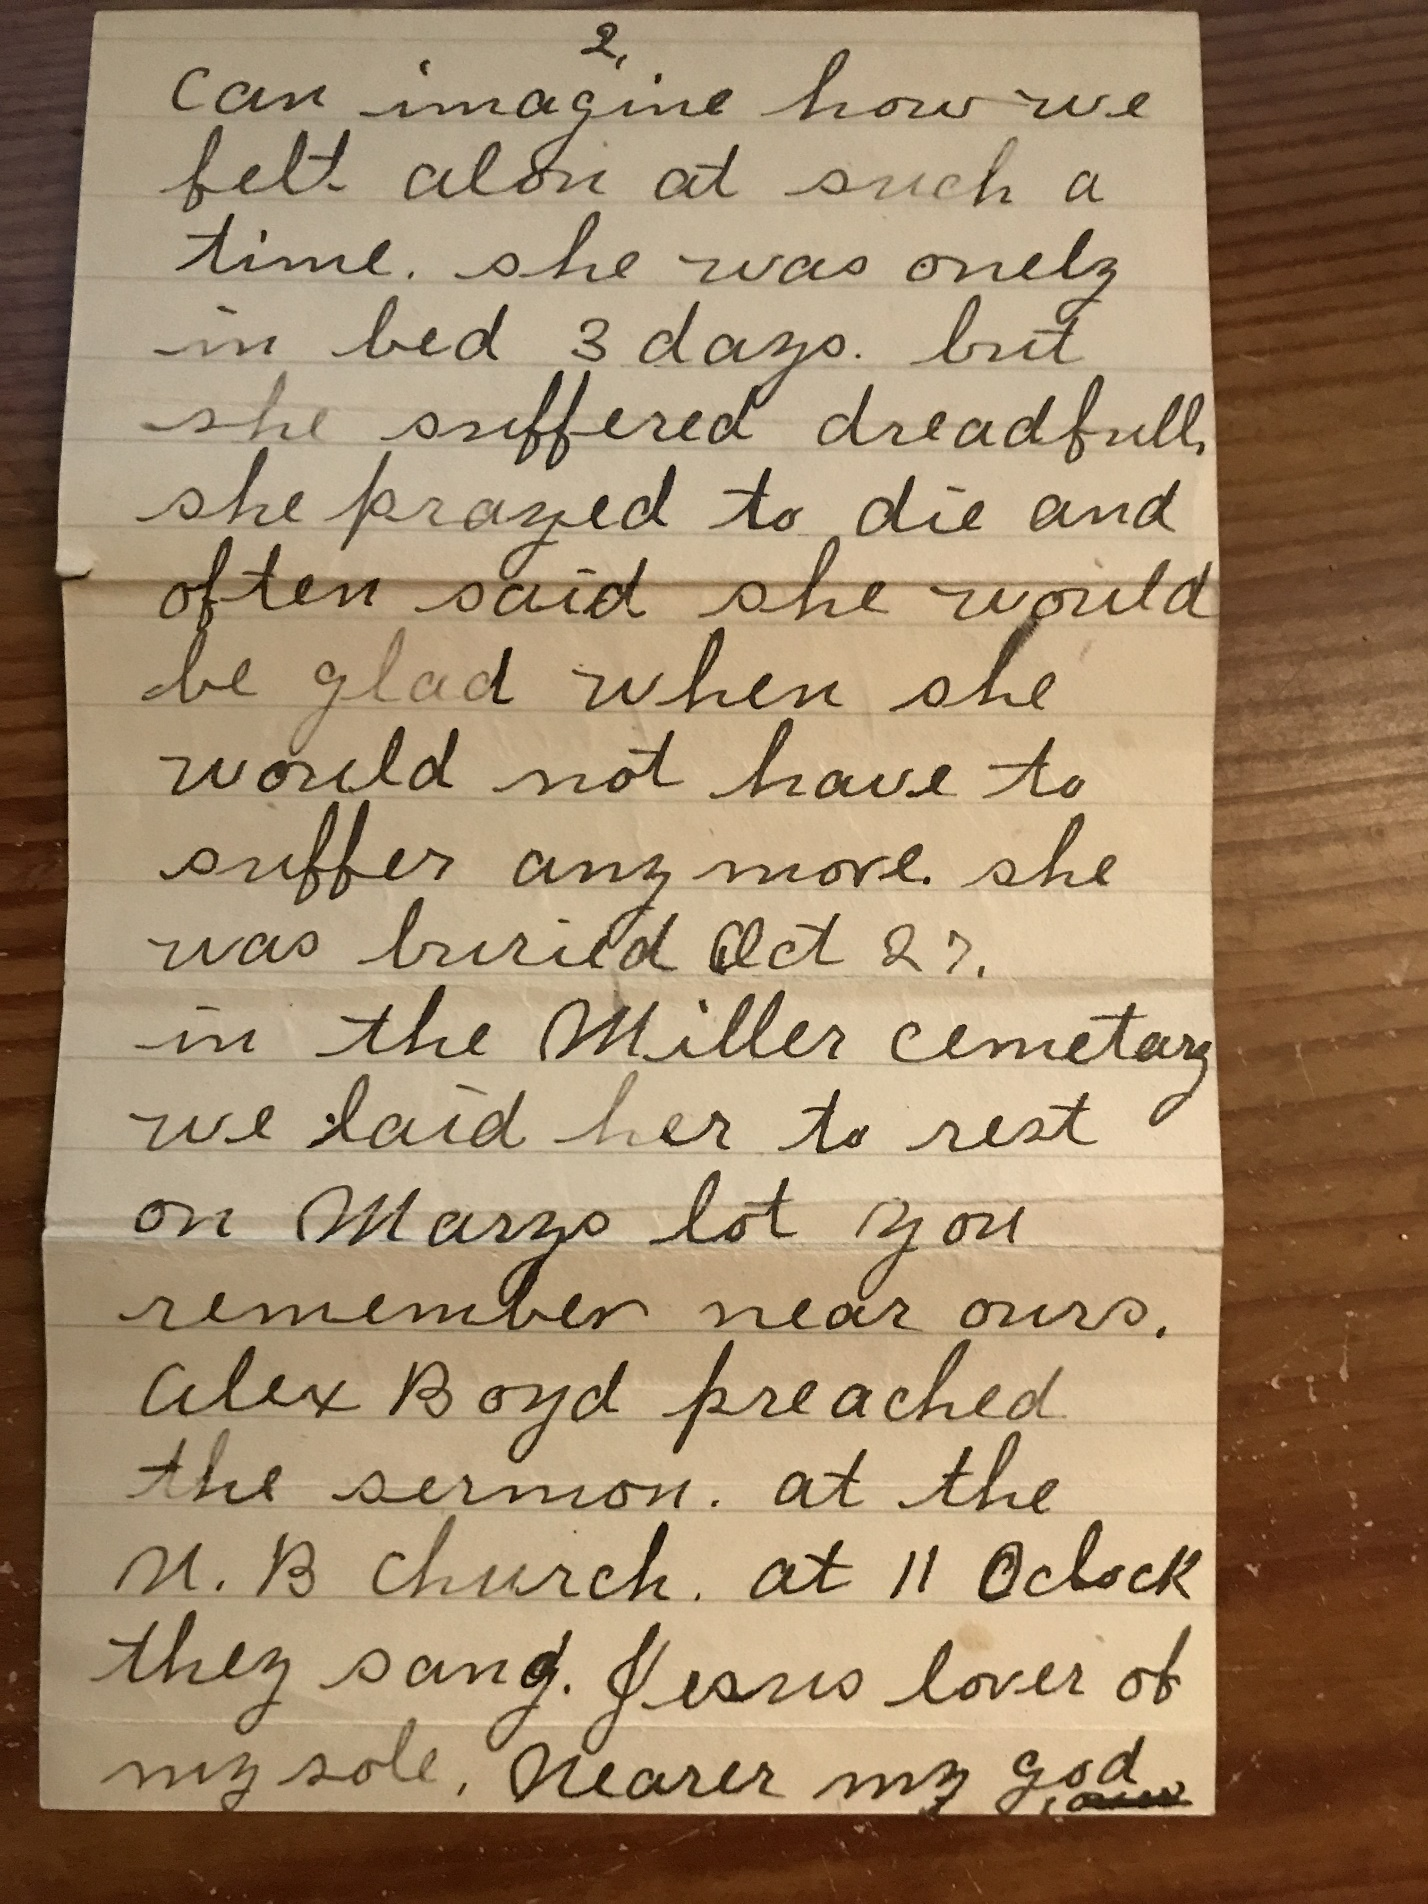 2.
can imagine how we
felt alon at such a
time. she was onely
in bed 3 days. but
she suffered dreadfull,
she prayed to die and
often said she would
be glad when she
would not have to
suffer any more. she
was buried Oct 27.
in the Miller cemetary
we laid her to rest
on Marys lot you
remember near ours.
Alex Boyd preached
the sermon. at the
U. B church. at 11 Oclock
they sang. Jesus lover of
my sole, Nearer my god